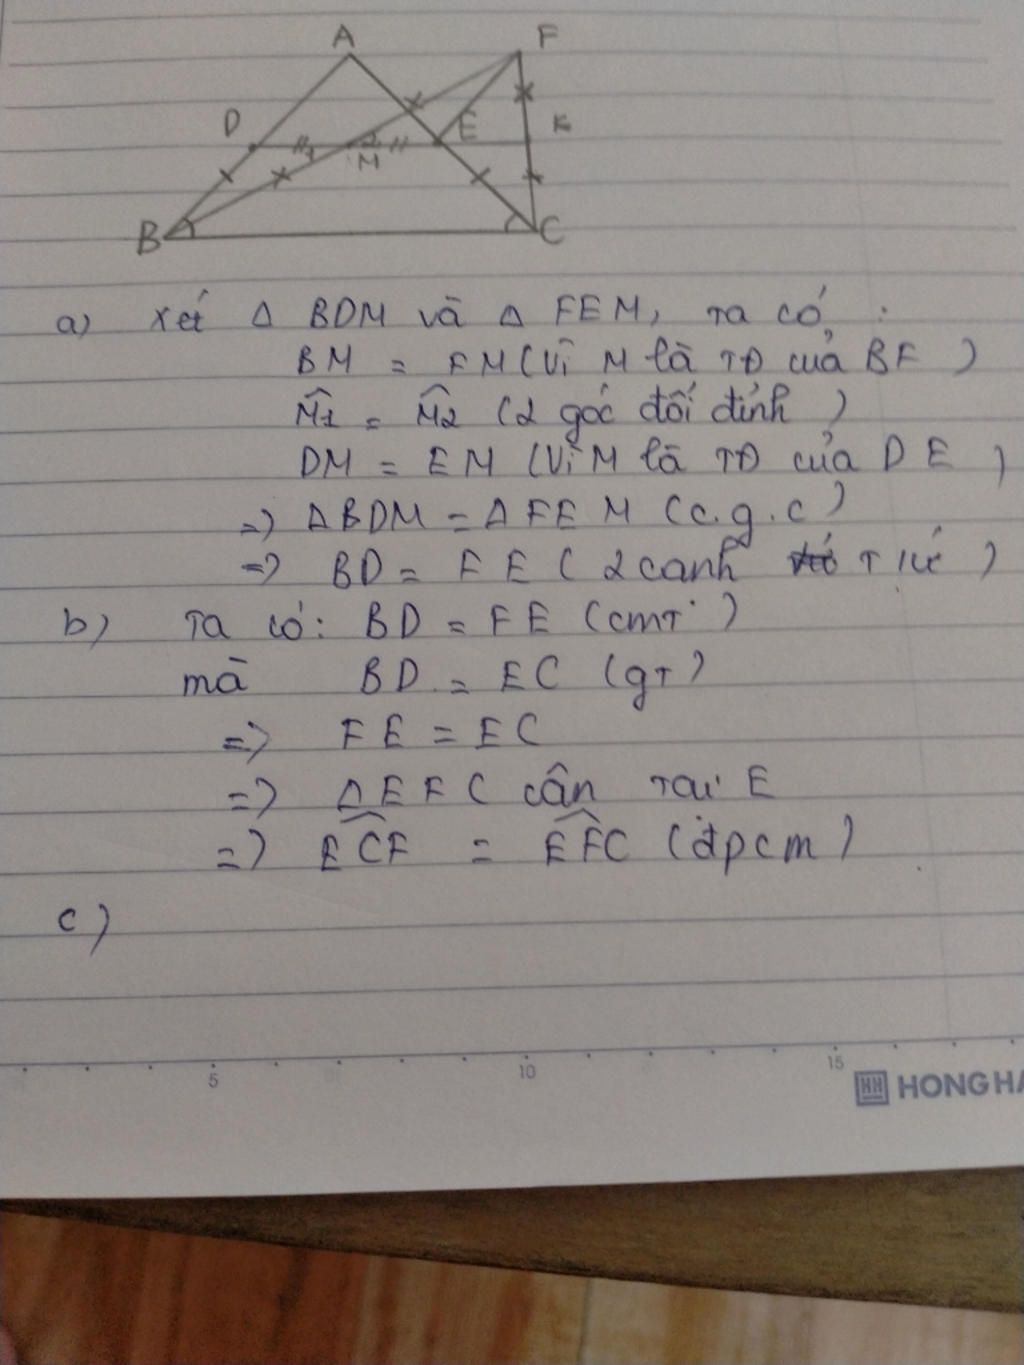 A
F
D
E
K
1
2
M
B
C
a) Xét Δ BDM và Δ FEM, ta có :
BM = FM (vì M là TĐ của BF )
M̂1 = M̂2 (2 góc đối đỉnh )
DM = EM (vì M là TĐ của DE )
=) ΔBDM = ΔFEM (c.g.c)
=) BD = FE ( 2 cạnh T/ứ )
b) Ta có: BD = FE (cmT)
mà BD = EC (gT)
=) FE = EC
=) ΔEFC cân Tại E
=) ECF = EFC (đpcm)
c)
5 10 15
HH HONG HA